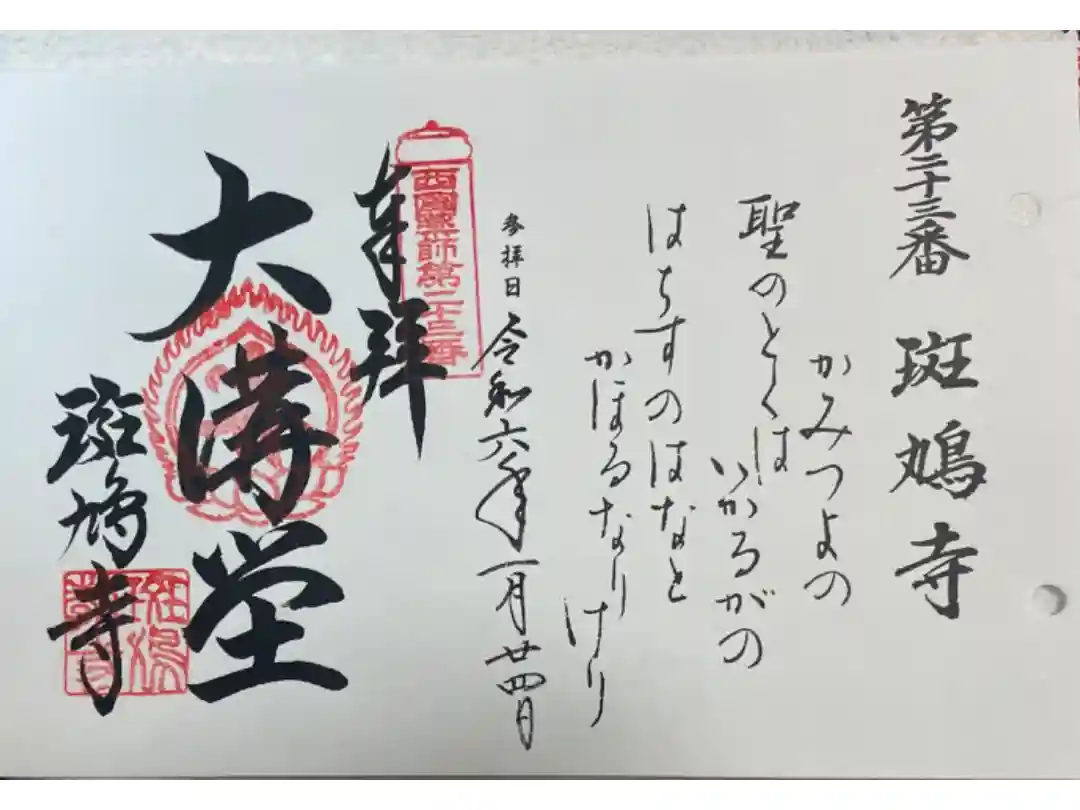 第二十三番　斑鳩寺
かみつよの
聖のとくは　いかるがの
はちすのはなと
かほるなり　けり
参拝日　令和六年一月廿四日
奉拝
西國薬師第二十三番
大講堂
斑鳩寺